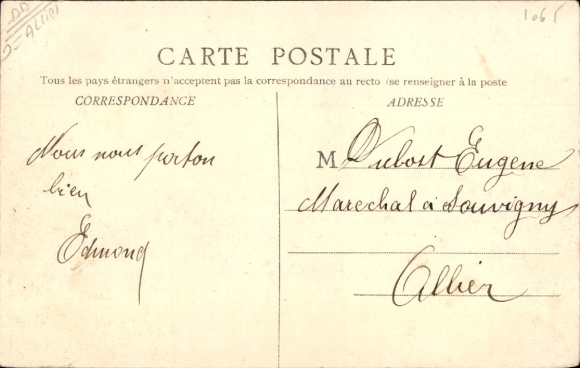 1065
CARTE POSTALE
Tous les pays étrangers n'acceptent pas la correspondance au recto (se renseigner à la poste
CORRESPONDANCE
ADRESSE
Nous nous porton
bien
Edmond
M Dubost Eugene
Marechal a Souvigny
Allier